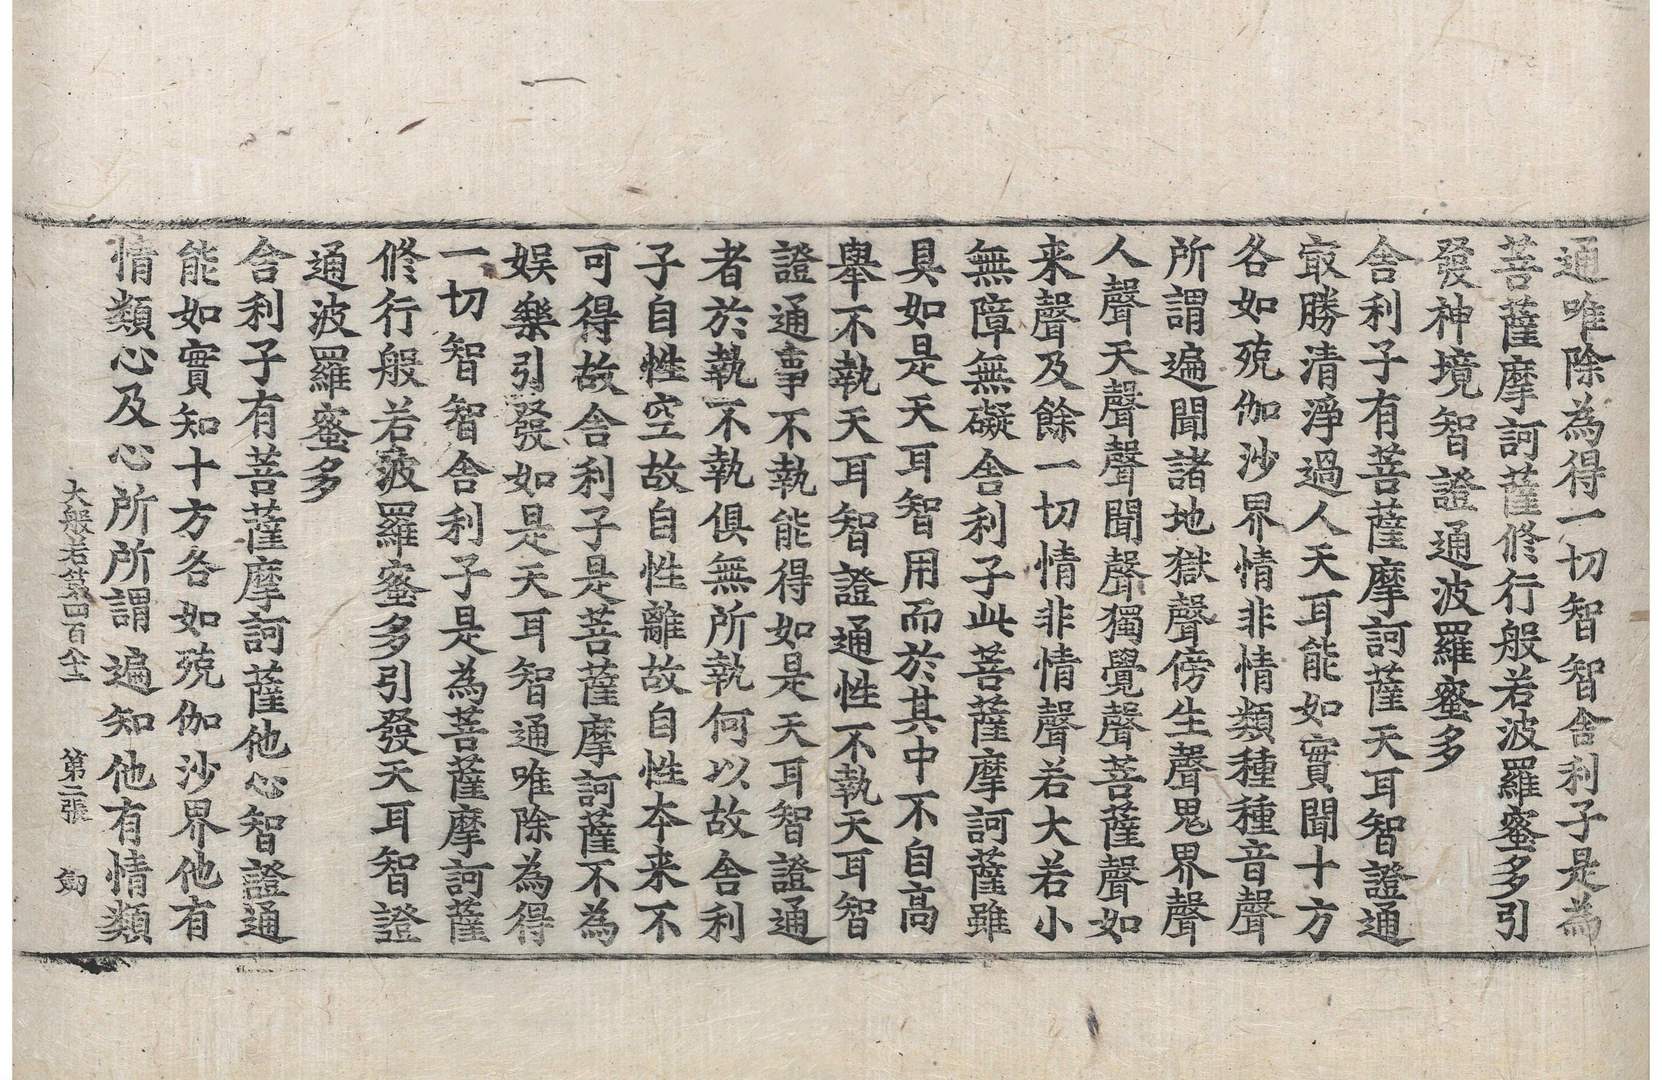 通唯除為得一切智智舎利子是為
菩薩摩訶薩修行般若波羅蜜多引
發神境智證通波羅蜜多
舎利子有菩薩摩訶薩天耳智證通
㝡勝清淨過人天耳能如實聞十方
各如殑伽沙界情非情類種種音聲
所謂遍聞諸地獄聲傍生聲鬼界聲
人聲天聲聲聞聲獨覺聲菩薩聲如
来聲及餘一切情非情聲若大若小
無障無礙舎利子此菩薩摩訶薩雖
具如是天耳智用而於其中不自高
舉不執天耳智證通性不執天耳智
證通事不執能得如是天耳智證通
者於執不執俱無所執何以故舎利
子自性空故自性離故自性本来不
可得故舎利子是菩薩摩訶薩不為
娱樂引發如是天耳智通唯除為得
一切智智舎利子是為菩薩摩訶薩
修行般若波羅蜜多引發天耳智證
通波羅蜜多
舎利子有菩薩摩訶薩他心智證通
能如實知十方各如殑伽沙界他有
情類心及心所所謂遍知他有情類
大般若第四百 第二張